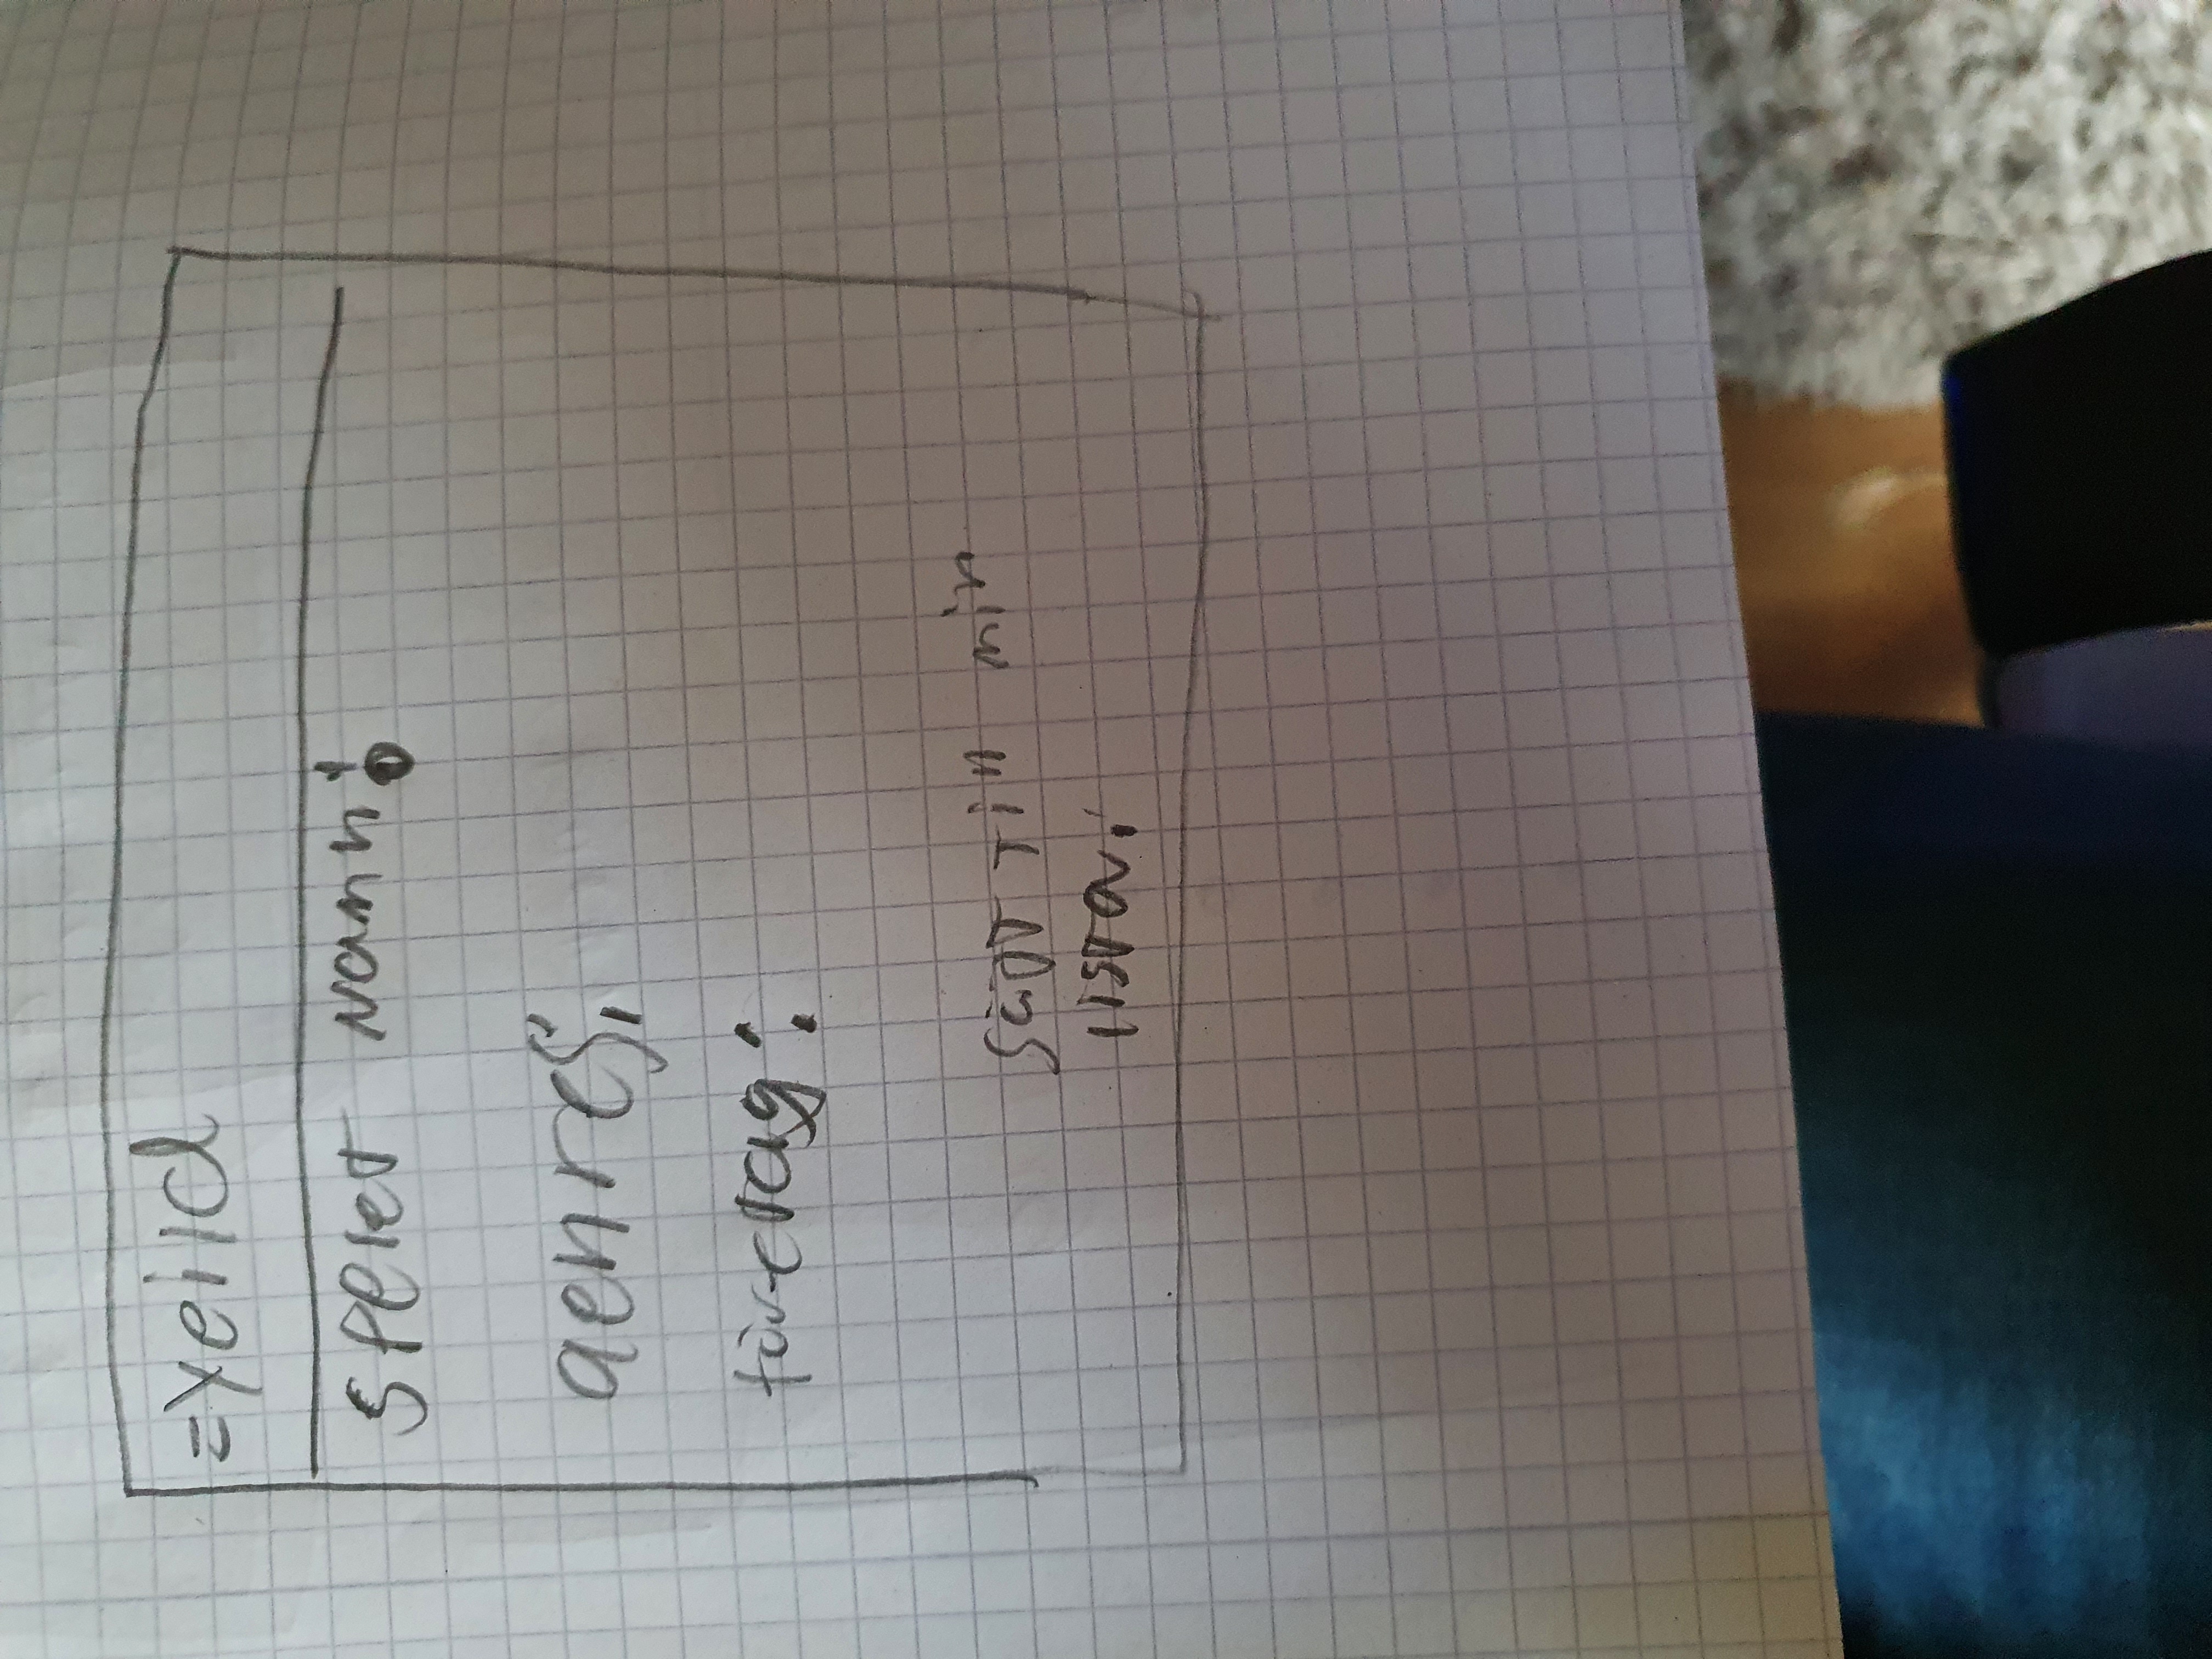 =yeild
spelet namn:
genres:
företag:
sätt till min
lista.